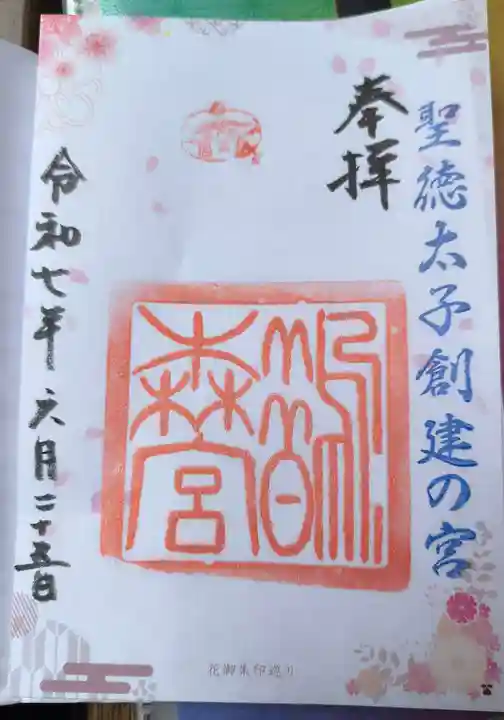 聖徳太子創建の宮
奉拝
鵲森宮
令和七年六月二十五日
花御朱印巡り